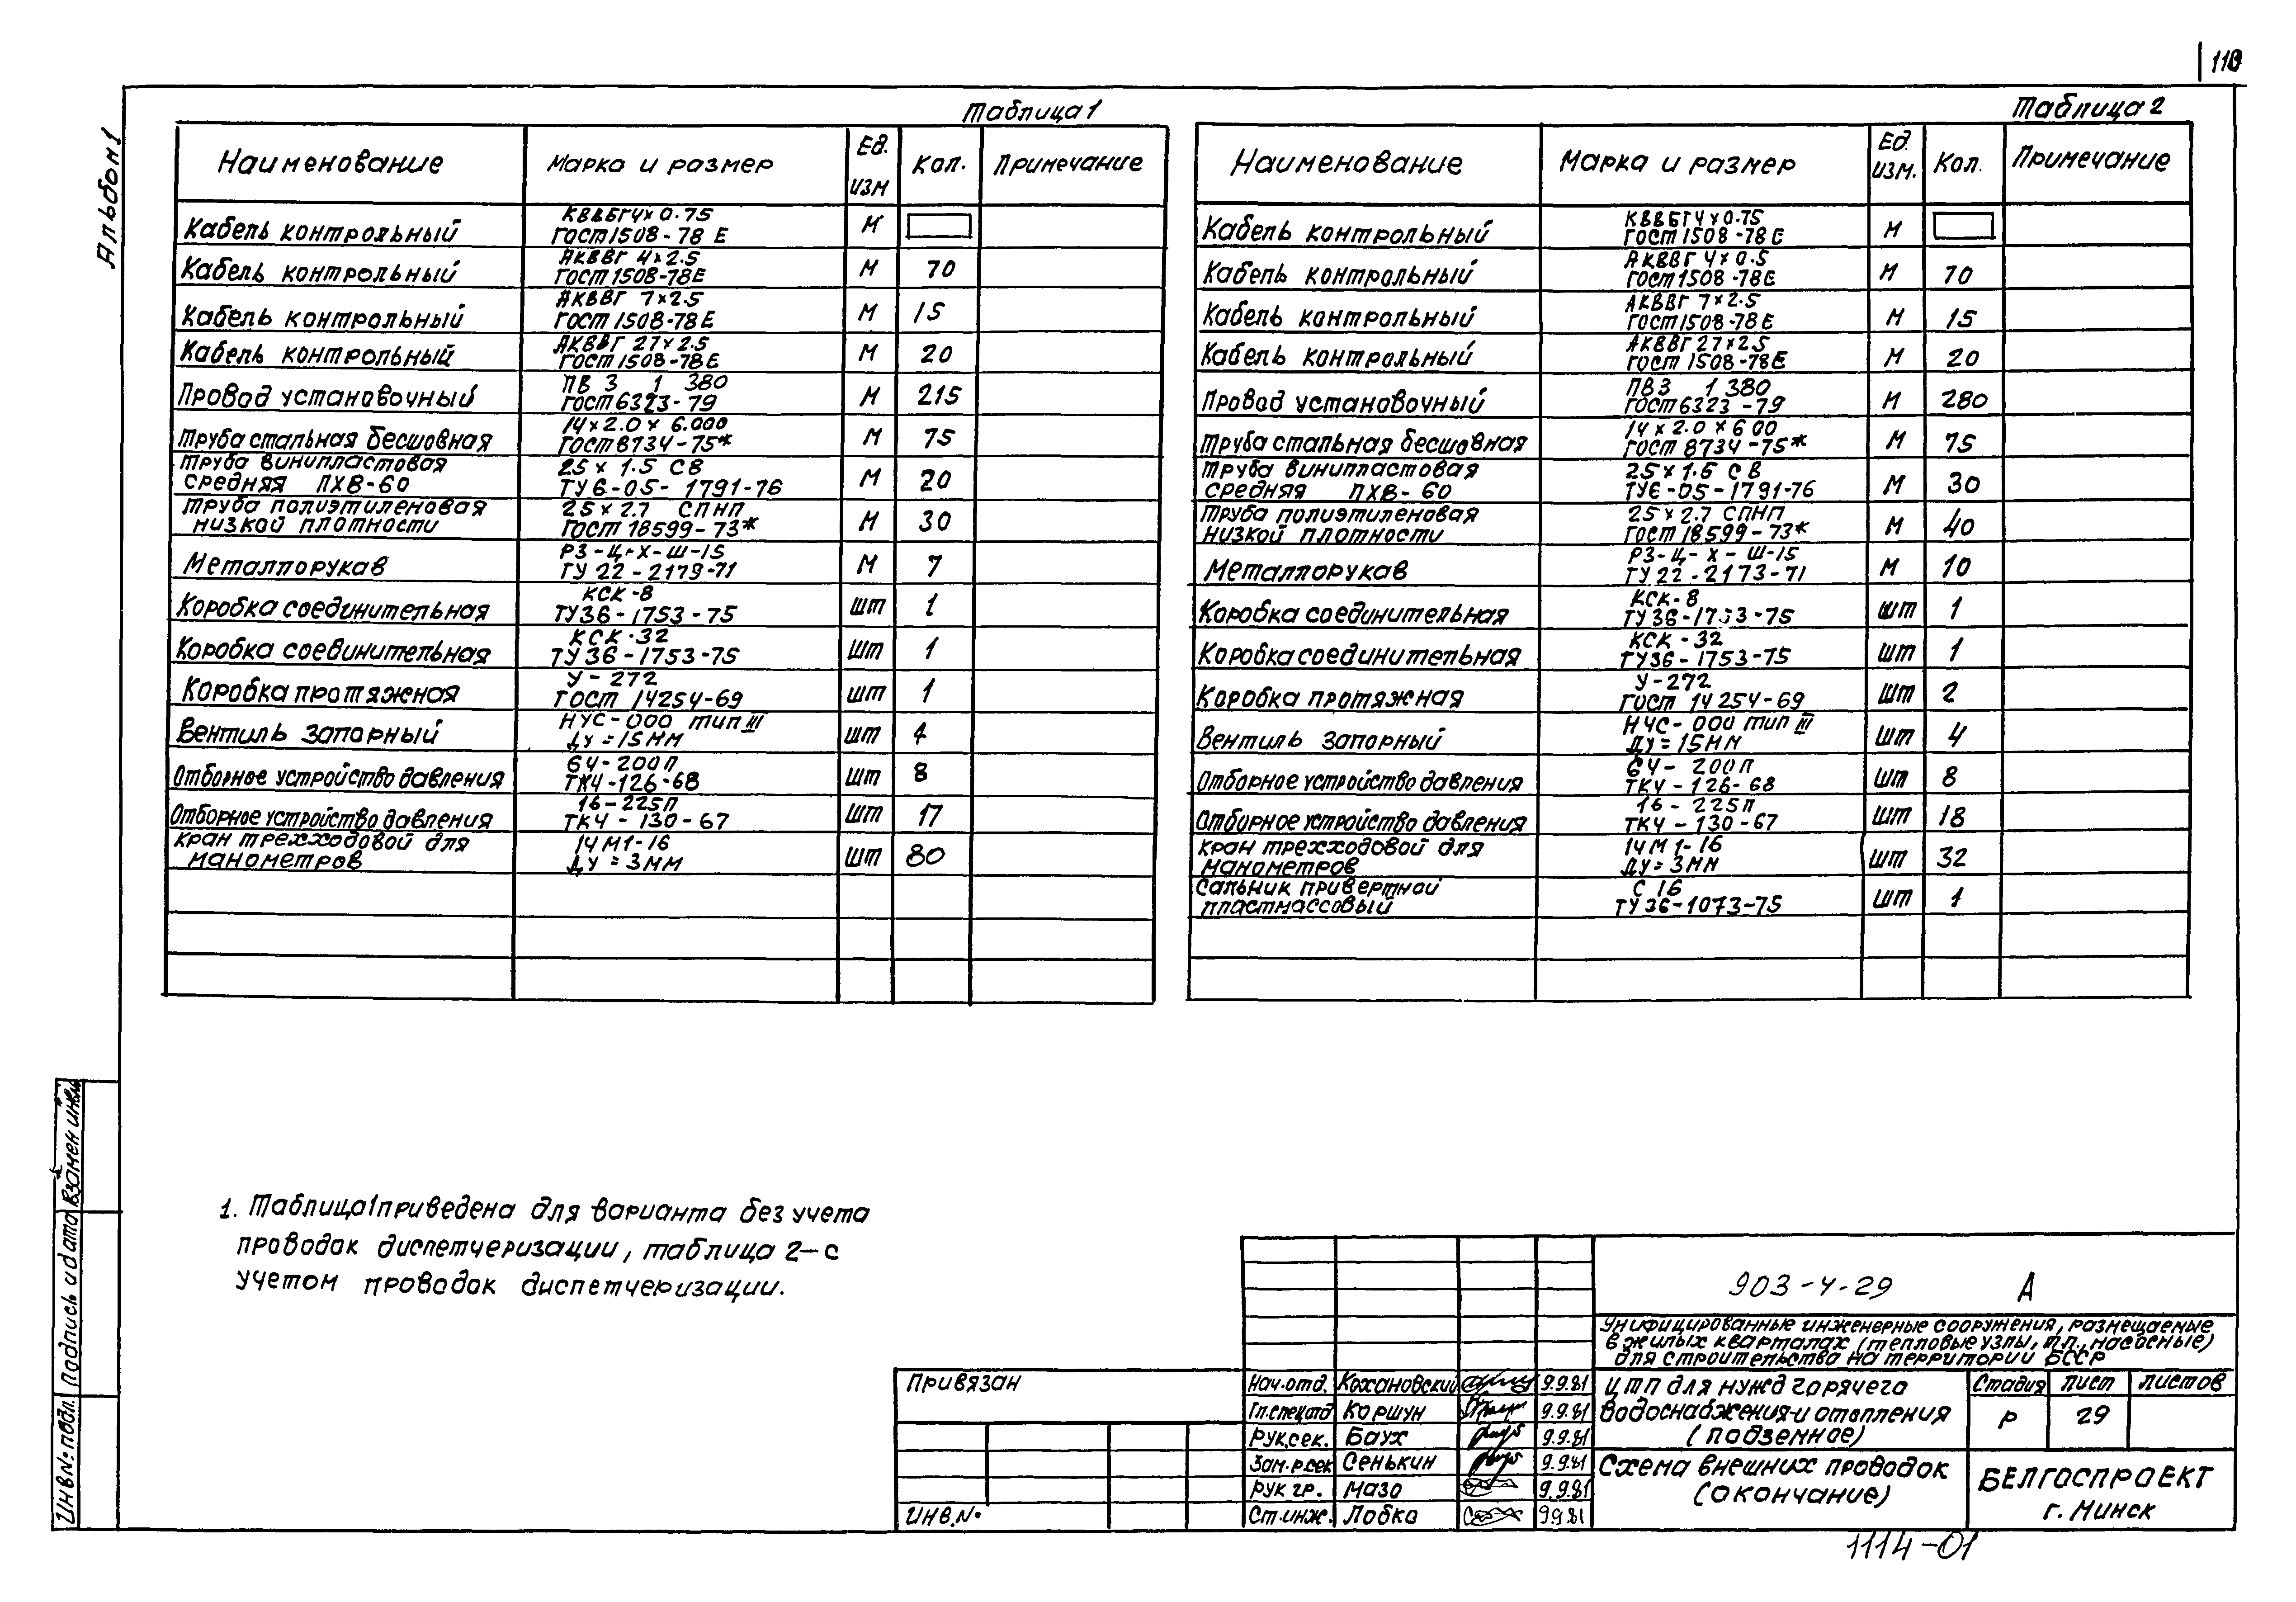 110
Альбом 1
Таблица 1
Наименование | Марка и размер | Ед. изм | Кол. | Примечание
Кабель контрольный | КВВБГ 4×0.75 ГОСТ 1508-78 Е | м |
Кабель контрольный | АКВВГ 4×2.5 ГОСТ 1508-78Е | м | 70
Кабель контрольный | АКВВГ 7×2.5 ГОСТ 1508-78Е | м | 15
Кабель контрольный | АКВВГ 27×2.5 ГОСТ 1508-78Е | м | 20
Провод установочный | ПВ 3 1 380 ГОСТ 6323-79 | м | 215
Труба стальная бесшовная | 14×2.0×6.000 ГОСТ 8734-75* | м | 75
Труба винипластовая средняя ПХВ-60 | 25×1.5 СВ ТУ 6-05-1791-76 | м | 20
Труба полиэтиленовая низкой плотности | 25×2.7 СПНП ГОСТ 18599-73* | м | 30
Металлорукав | РЗ-Ц-Х-Ш-15 ТУ 22-2179-71 | м | 7
Коробка соединительная | КСК-8 ТУ36-1753-75 | шт | 1
Коробка соединительная | КСК-32 ТУ 36-1753-75 | шт | 1
Коробка протяжная | У-272 ГОСТ 14254-69 | шт | 1
Вентиль запорный | НЧС-000 тип III Ду=15мм | шт | 4
Отборное устройство давления | 64-200П ТКЧ-126-68 | шт | 8
Отборное устройство давления | 16-225П ТКЧ-130-67 | шт | 17
Кран трехходовой для манометров | 14М1-16 Ду=3мм | шт | 80
Таблица 2
Наименование | Марка и размер | Ед. изм. | Кол. | Примечание
Кабель контрольный | КВВБГ 4×0.75 ГОСТ 1508-78Е | м |
Кабель контрольный | АКВВГ 4×0.5 ГОСТ 1508-78Е | м | 70
Кабель контрольный | АКВВГ 7×2.5 ГОСТ 1508-78Е | м | 15
Кабель контрольный | АКВВГ 27×2.5 ГОСТ 1508-78Е | м | 20
Провод установочный | ПВ3 1 380 ГОСТ 6323-79 | м | 280
Труба стальная бесшовная | 14×2.0×6 00 ГОСТ 8734-75* | м | 75
Труба винипластовая средняя ПХВ-60 | 25×1.5 СВ ТУ6-05-1791-76 | м | 30
Труба полиэтиленовая низкой плотности | 25×2.7 СПНП ГОСТ 18599-73* | м | 40
Металлорукав | РЗ-Ц-Х-Ш-15 ТУ 22-2173-71 | м | 10
Коробка соединительная | КСК-8 ТУ36-1753-75 | шт | 1
Коробка соединительная | КСК-32 ТУ36-1753-75 | шт | 1
Коробка протяжная | У-272 ГОСТ 14254-69 | шт | 2
Вентиль запорный | НЧС-000 тип III Ду=15мм | шт | 4
Отборное устройство давления | 64-200П ТКЧ-126-68 | шт | 8
Отборное устройство давления | 16-225П ТКЧ-130-67 | шт | 18
Кран трехходовой для манометров | 14М1-16 Ду=3мм | шт | 32
Сальник привертной пластмассовый | С 16 ТУ36-1073-75 | шт | 1
1. Таблица 1 приведена для варианта без учета
проводок диспетчеризации, таблица 2-с
учетом проводок диспетчеризации.
Инв.№ подл. Подпись и дата Взамен инв.№
Привязан
Инв.№
Нач.отд. Кохановский 9.9.81
Гл.спец.отд Коршун 9.9.81
Рук.сек. Баух 9.9.81
Зам.р.сек Сенькин 9.9.81
Рук гр. Мазо 9.9.81
Ст.инж. Лобко 9.9.81
903-4-29 А
Унифицированные инженерные сооружения, размещаемые
в жилых кварталах (тепловые узлы, т.п., насосные)
для строительства на территории БССР
ЦТП для нужд горячего
водоснабжения и отопления
(подземное)
Стадия Лист Листов
Р 29
Схема внешних проводок
(окончание)
БЕЛГОСПРОЕКТ
г. Минск
1114-01